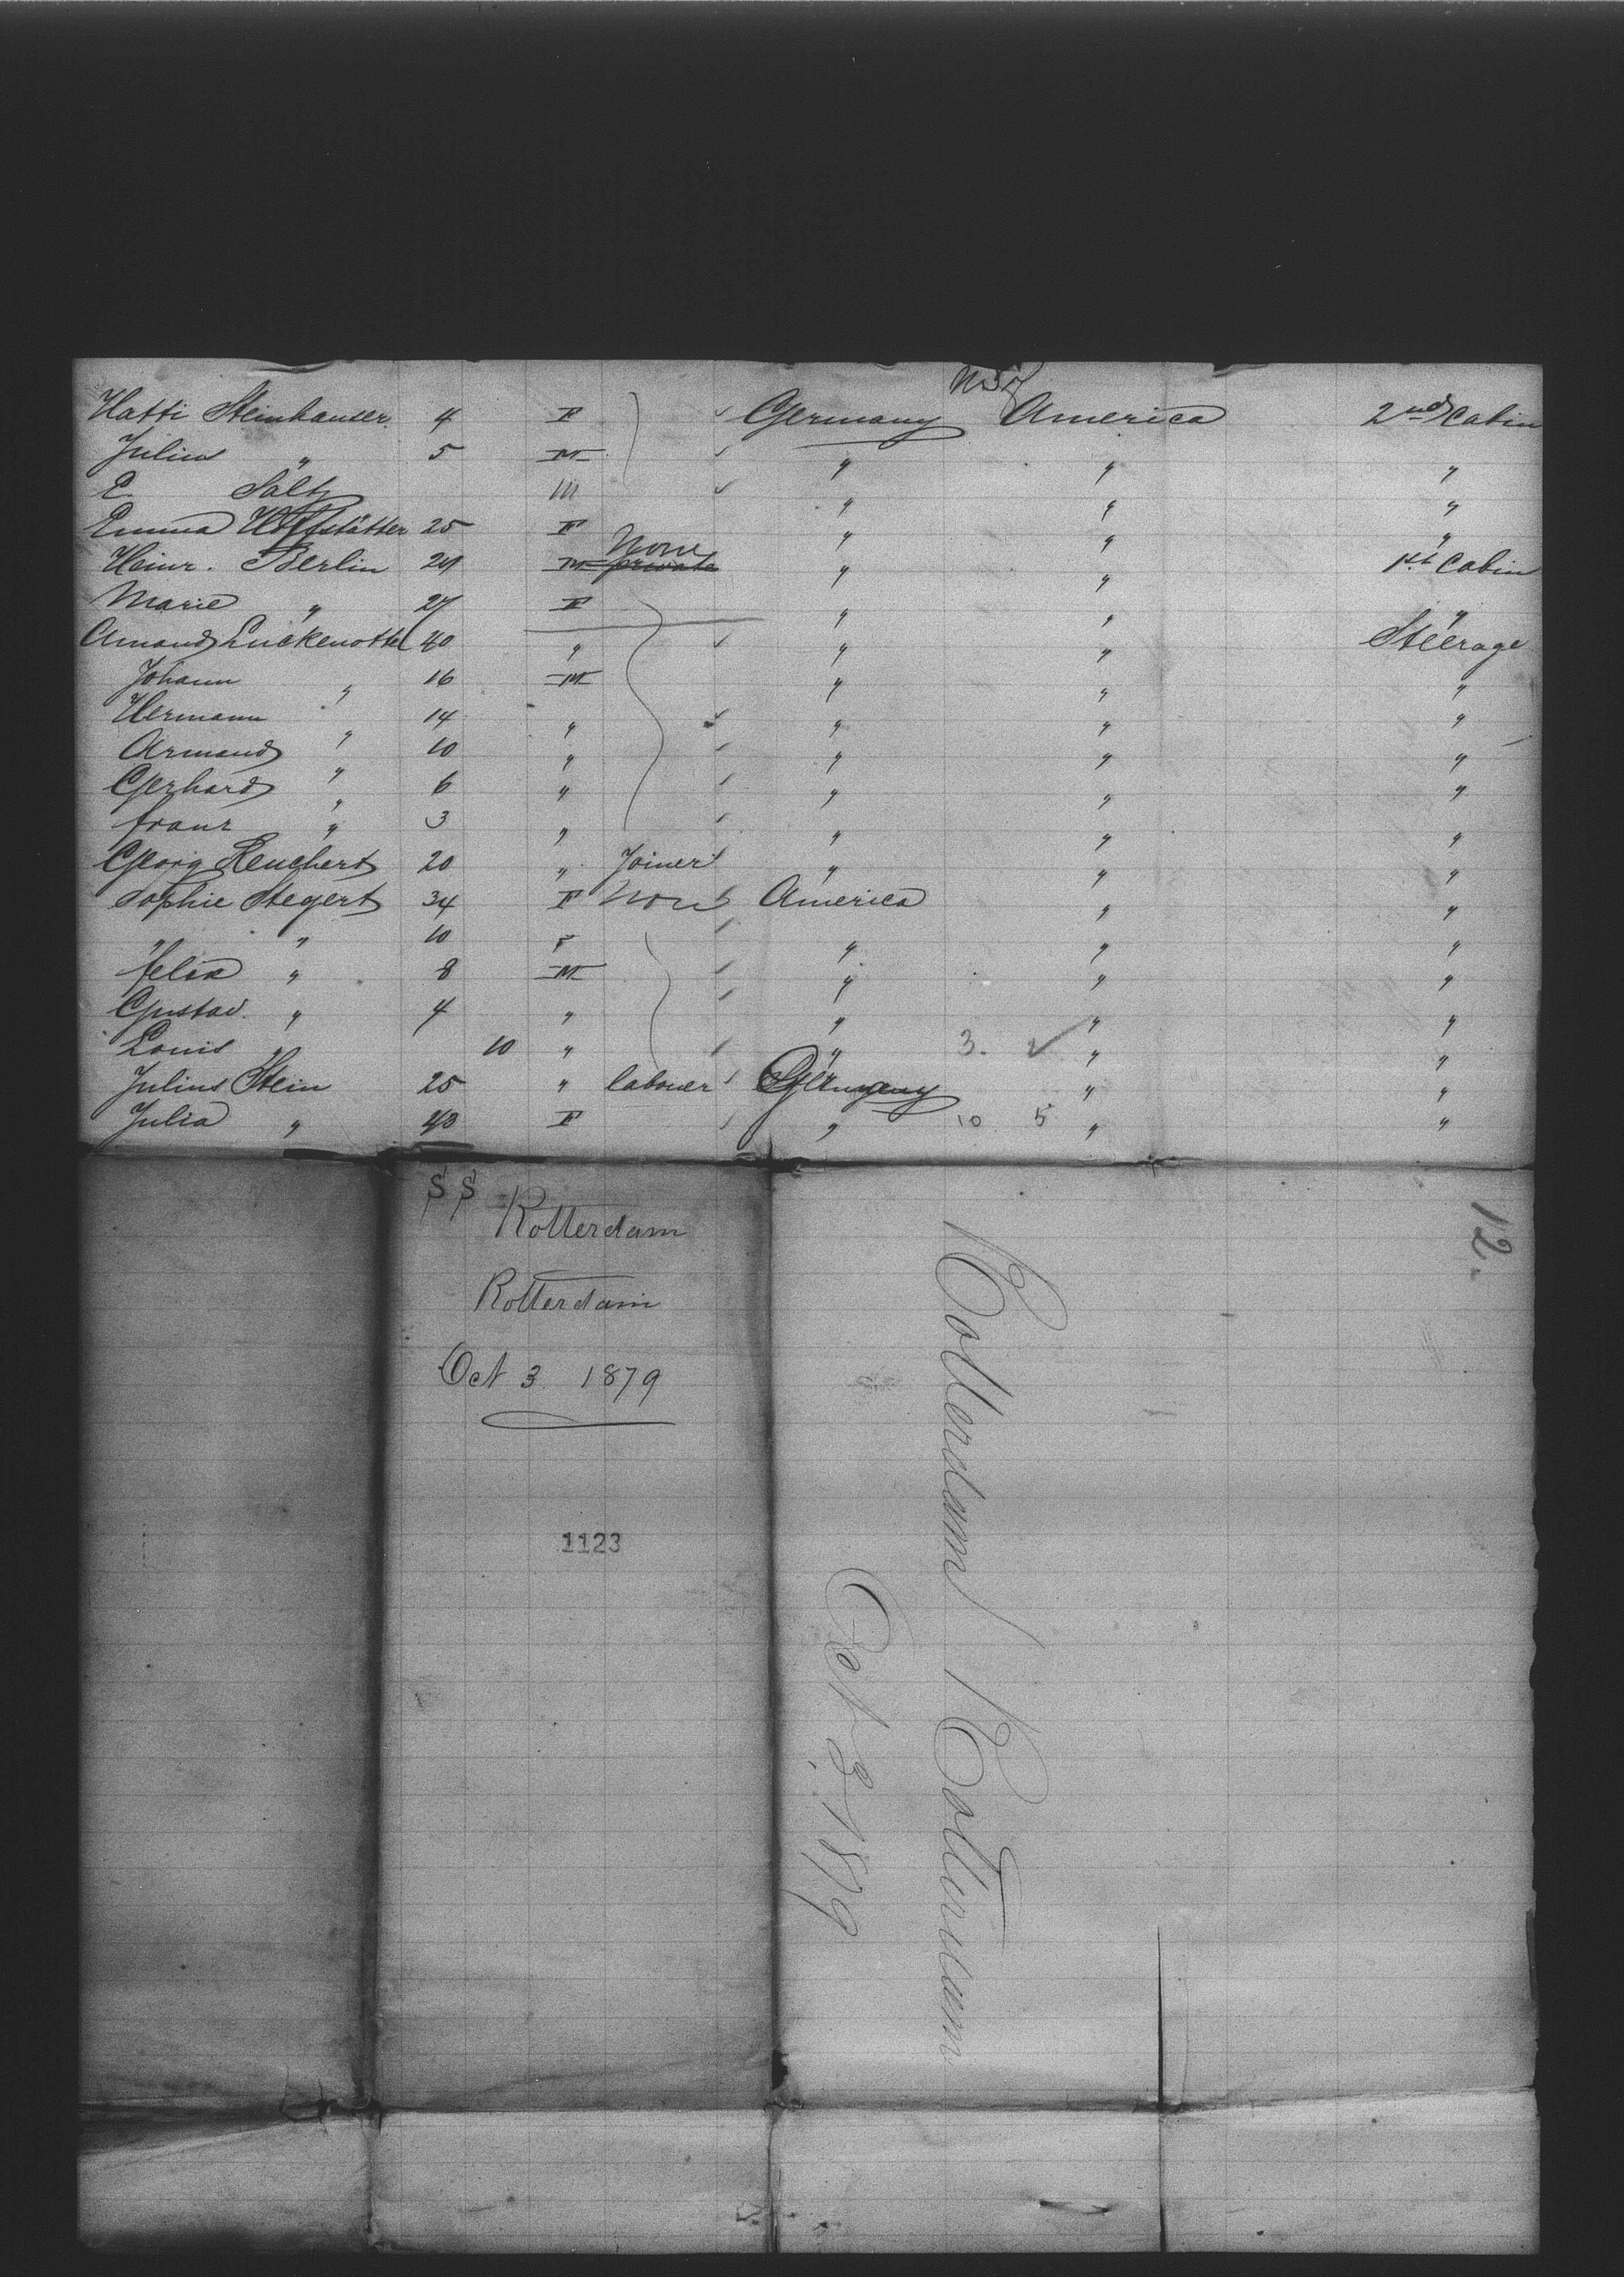 Hatti Steinhauser 4 F Germany America 2nd Cabin
Julius " 5 M " " "
E. Sältz M " " "
Emma Hoffstätter 25 F " " "
Heinr. Berlin 29 M None private " " 1st Cabin
Marie " 27 F " " "
Amand Luckenottel 40 " " " Steerage
Johann " 16 M " " "
Hermann " 14 " " " "
Armand " 10 " " " "
Gerhard " 6 " " " "
franz " 3 " " " "
Georg Reuchert 20 " Joiner " " "
Sophie Stegert 34 F None America " "
" " 10 F " " "
felix " 8 M " " "
Gustav. " 4 " " " "
Louis " 10 " " 3. ✓ " "
Julius Stein 25 " laborer Germany " "
Julia " 43 F " 10 5 " "
S S
Rotterdam
Rotterdam
Oct 3 1879
1123
12.
Rotterdam Rotterdam
Oct 3 1879